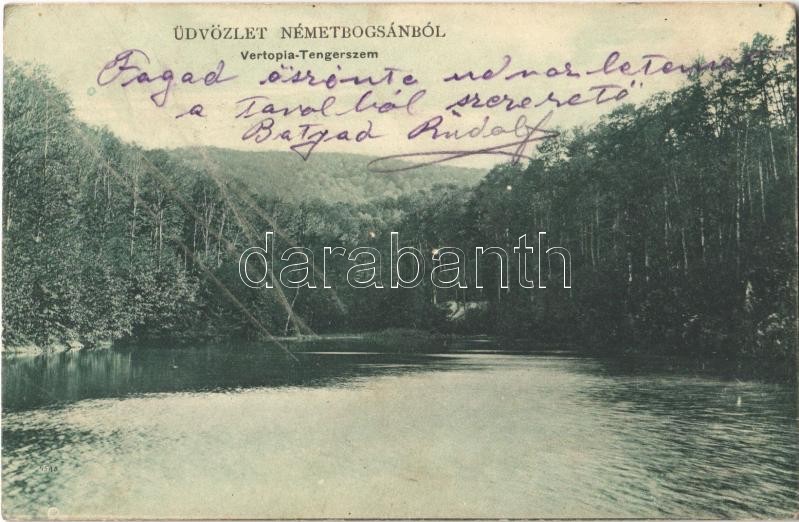 ÜDVÖZLET NÉMETBOGSÁNBÓL
Vertopia-Tengerszem
Fagad öszönte
a tavolból szerető
Batyad Rudolf
darabanth